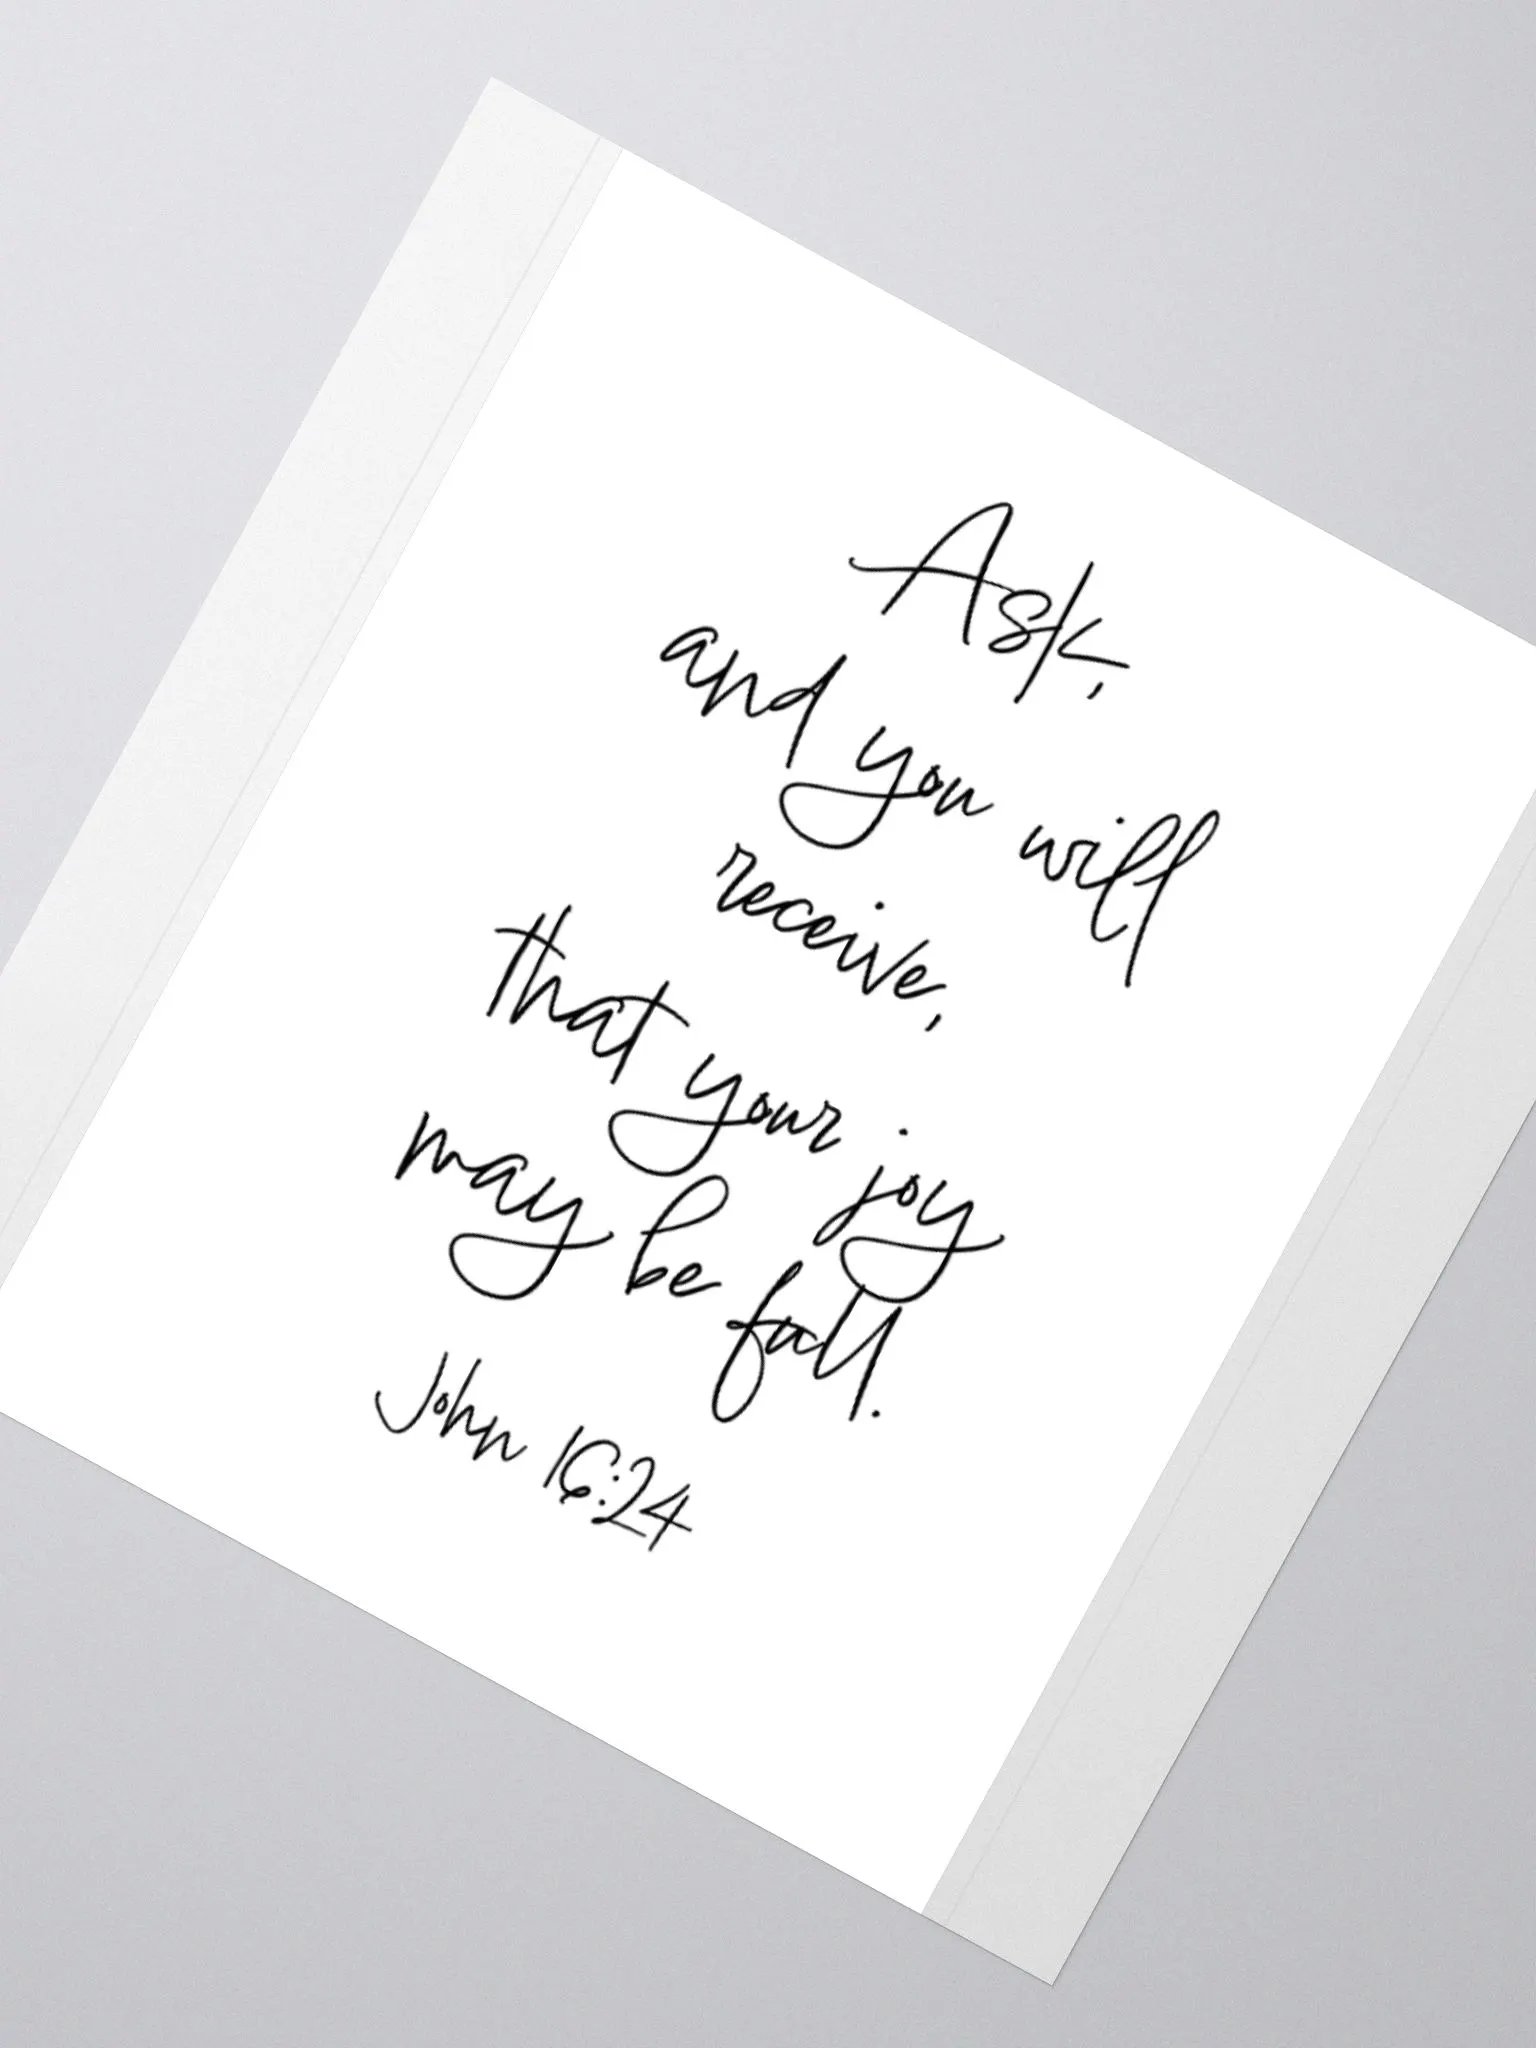 Ask,
and you will
receive,
that your joy
may be full.
John 16:24